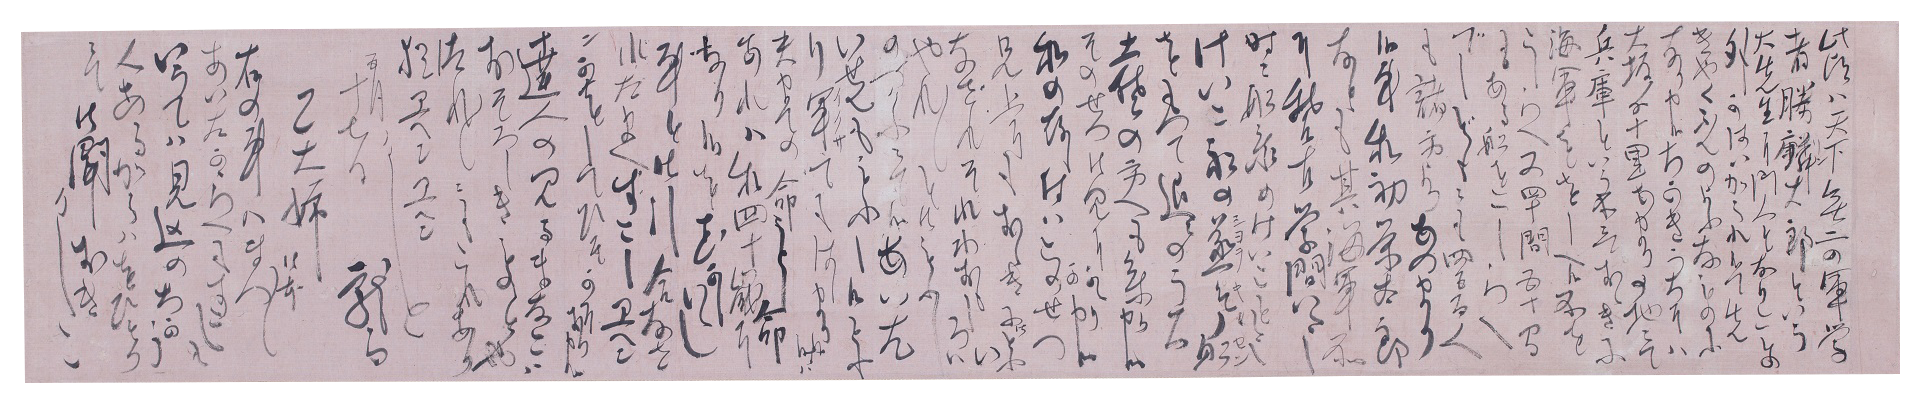 此頃ハ天下無二の軍学
者勝麟太郎という
大先生に門人となりことの
外かはいがられ候て先
きやくぶんのよふなものに
なり申候ちかきうちにハ
大坂より十里あまりの地ニて
兵庫という所ニておゝきに
海軍ををしへ候所を
こしらへ又四十間五十間
もある船をこしらへ
でしどもニも四五百人
も諸方よりあつまり
候事私初栄太郎
なども其海軍所
に稽古学問いたし
時々船乗のけいこもいたし
けいこ船の蒸気船
をもつて近々のうち
土佐の方へも参り申候
そのせつ御見にかゝり可申候
私の存じ付ハこのせつ
兄上にもおゝきに御どふい
なされそれわおもしろい
やれ〳〵と御もふし
のつがふニて候あいだ
いぜんももふし候とふ
り軍サでもはじまり候時ハ
夫までの命ことし命
あれバ私四十歳に
なり候をむかしいゝし
事を御引合なさ
れたまへすこしエヘン
ニかをしてひそかにおり申候
達人の見るまなこハ
おそろしきものとや
つれ〴〵ニもこれあり
猶エヘンエヘン
かしこ
五月
十七日
龍馬
乙大姉御本
右の事ハまづ〳〵
あいだがらへもすこしも
いうてハ見込のちがう
人あるからハをひとり
ニて御聞おき
かしこ